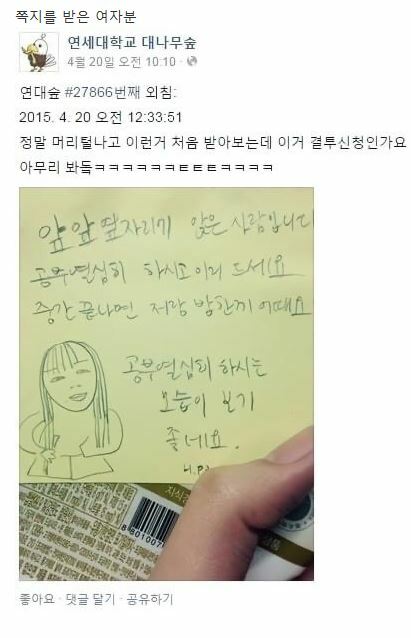 쪽지를 받은 여자분
연세대학교 대나무숲
4월 20일 오전 10:10 ·
연대숲 #27866번째 외침:
2015. 4. 20 오전 12:33:51
정말 머리털나고 이런거 처음 받아보는데 이거 결투신청인가요
아무리 봐돜ㅋㅋㅋㅋㅋㅌㅌㅌㅋㅋㅋㅋ
앞앞 옆자리에 앉은 사람입니다
공부열심히 하시고 이리 드세요
중간 끝나면 저랑 밥한끼 어때요
공부열심히 하시는
모습이 보기
좋네요.
좋아요 · 댓글 달기 · 공유하기